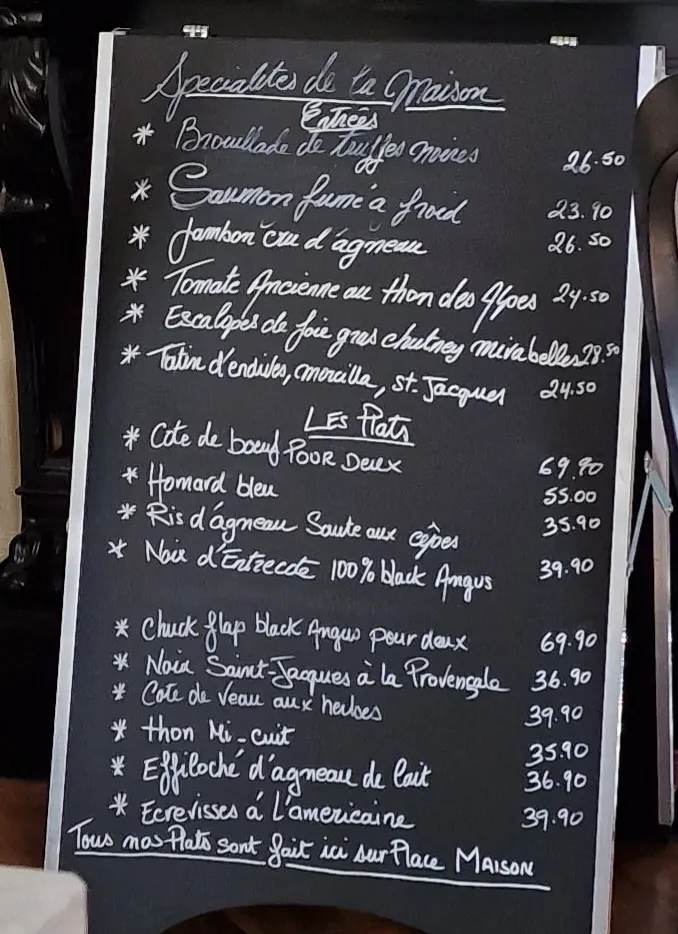 Specialites de la Maison
Entreés
* Brouillade de truffes noires 26.50
* Saumon fumé a froid 23.90
* Jambon cru d'agneau 26.50
* Tomate Ancienne au thon des 24.50
* Escalopes de foie gras chutney mirabelles 28.50
* Tatin d'endives, morcilla, St-Jacques 24.50
LES Plats
* Cote de boeuf POUR Deux 69.90
* Homard bleu 55.00
* Ris d'agneau Saute aux cêpes 35.90
* Noix d'Entrecote 100% black Angus 39.90
* Chuck flap black Angus pour deux 69.90
* Noix Saint-Jacques à la Provençale 36.90
* Cote de Veau aux herbes 39.90
* thon Mi-cuit 35.90
* Effiloché d'agneau de lait 36.90
* Ecrevisses á L'americaine 39.90
Tous nos Plats sont fait ici sur Place MAISON